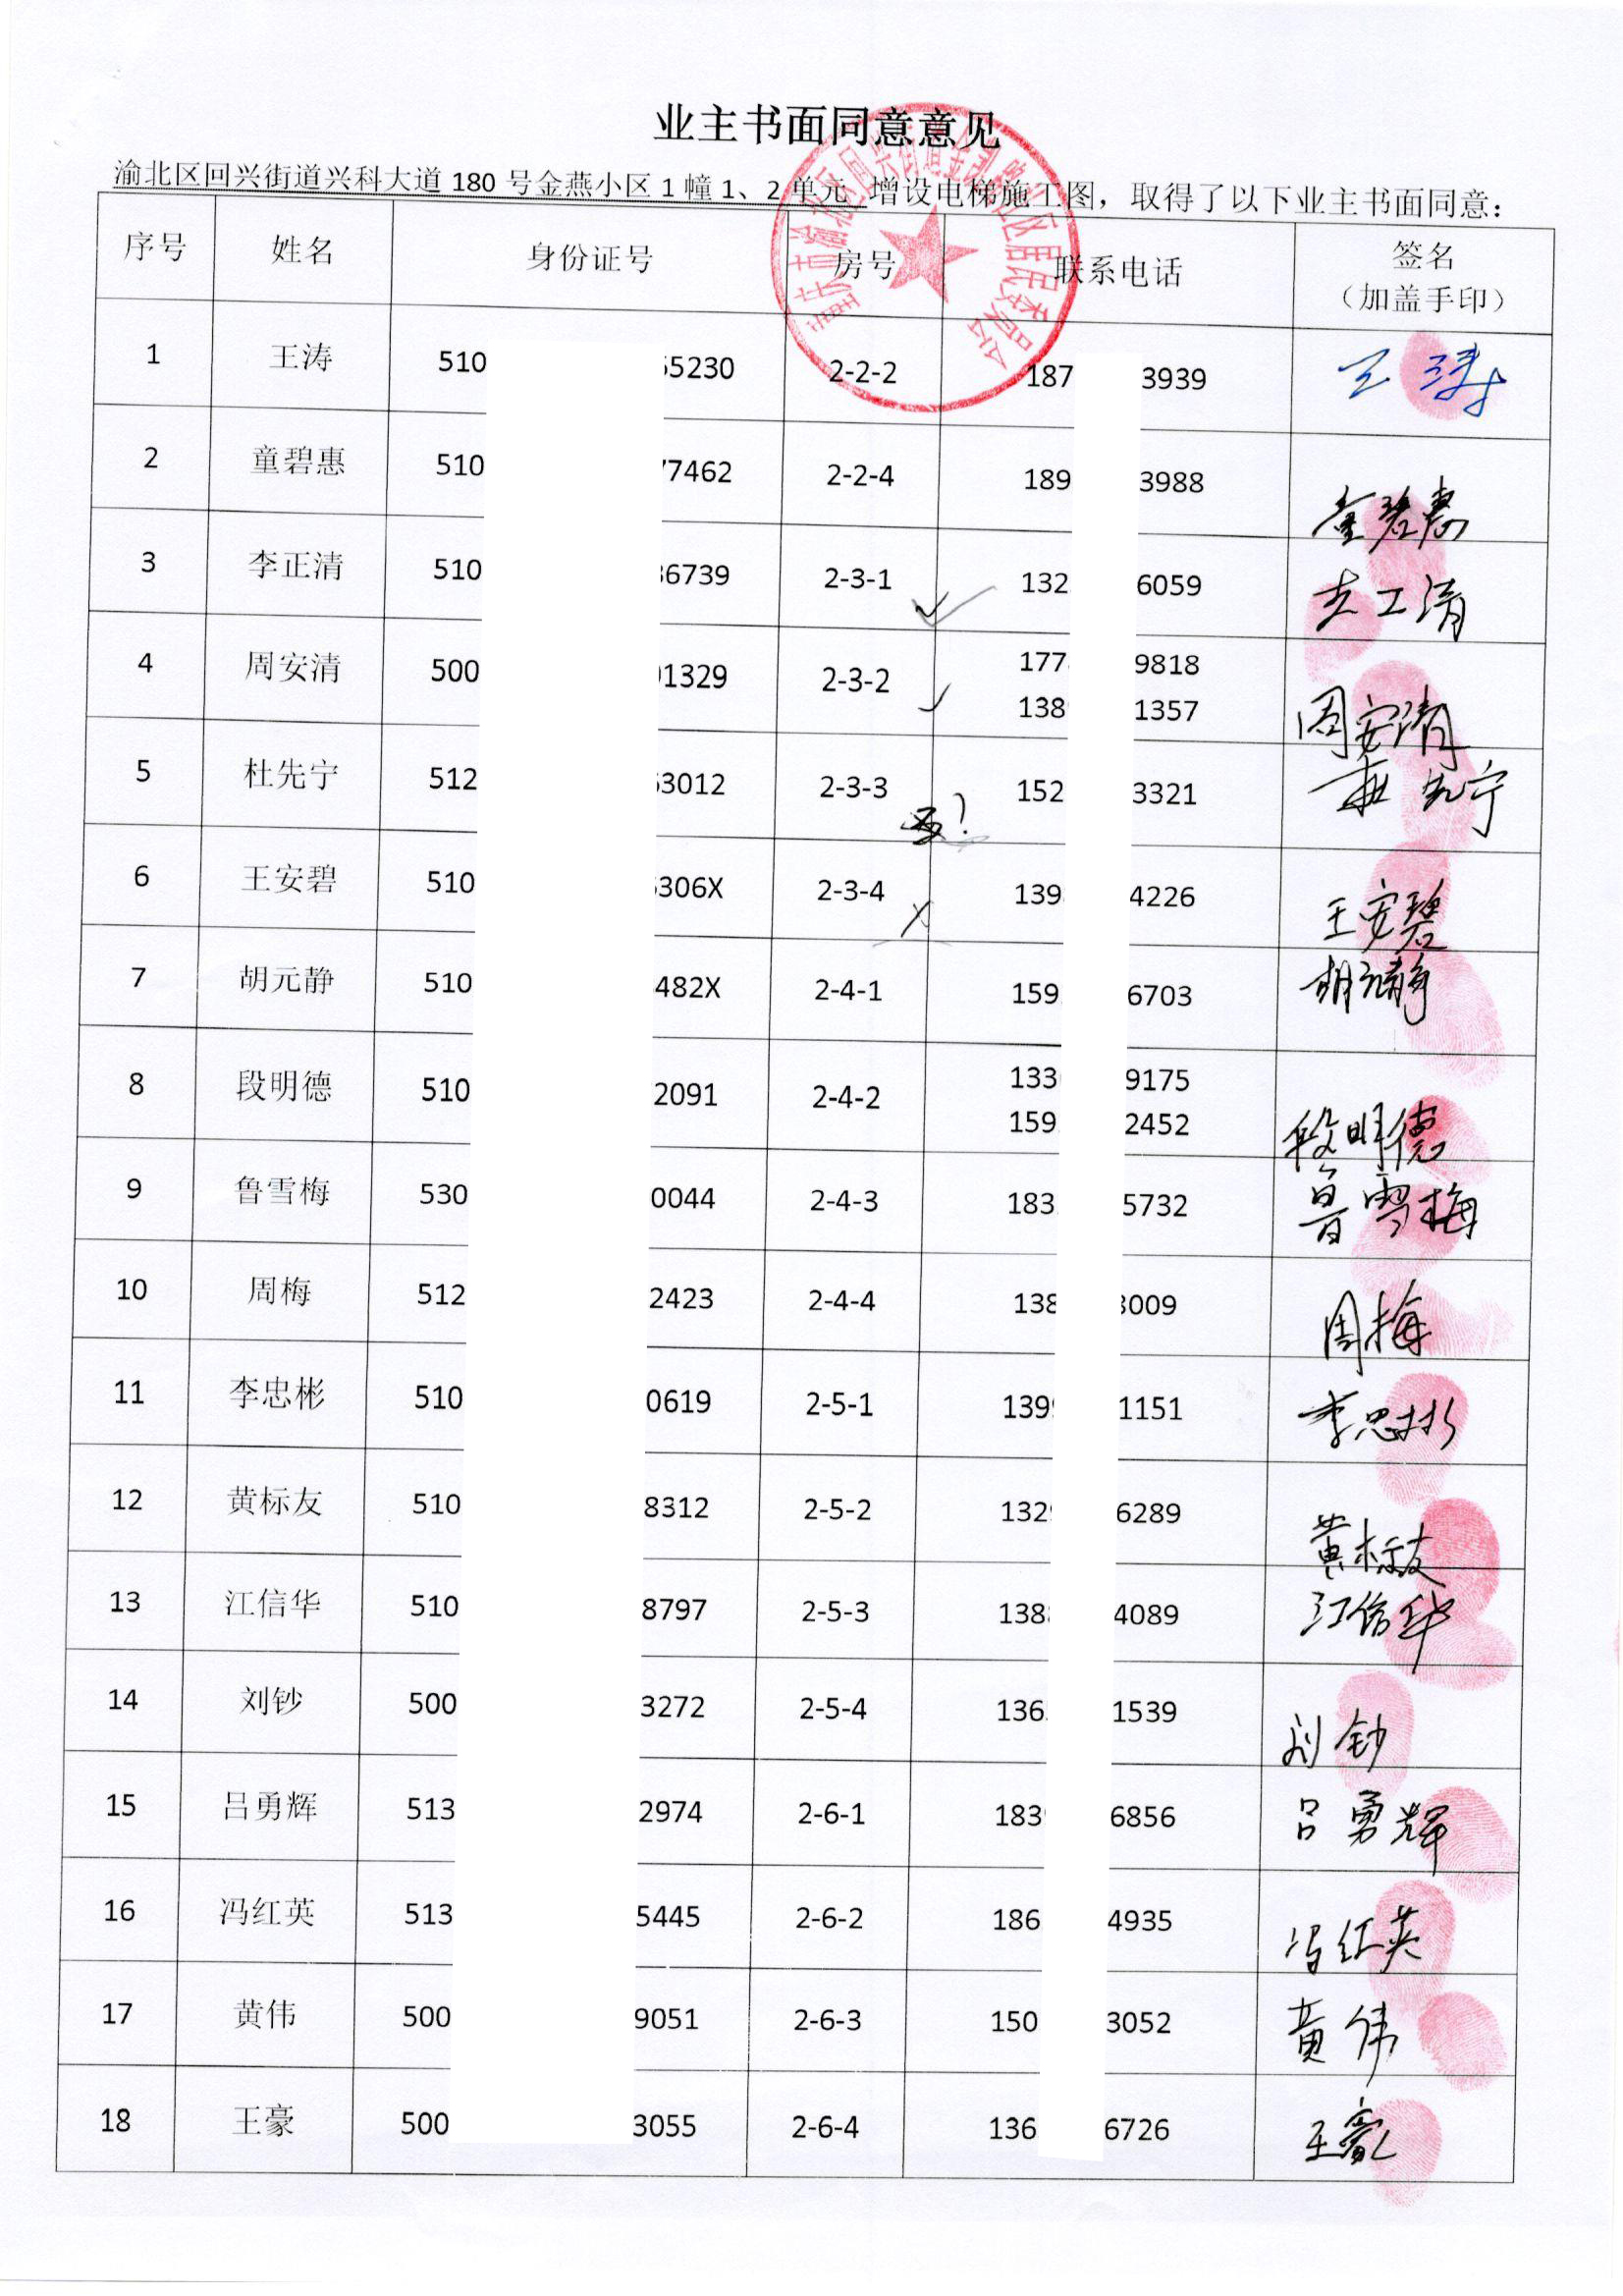 业主书面同意意见
渝北区回兴街道兴科大道 180 号金燕小区 1 幢 1、2 单元 增设电梯施工图，取得了以下业主书面同意：
序号 姓名 身份证号 房号 联系电话 签名
（加盖手印）
1 王涛 510 55230 2-2-2 187 3939 王涛
2 童碧惠 510 77462 2-2-4 189 3988 童碧惠
3 李正清 510 36739 2-3-1 132 6059
4 周安清 500 1329 2-3-2 177 9818
138 1357 周安清
5 杜先宁 512 3012 2-3-3 152 3321 杜先宁
6 王安碧 510 306X 2-3-4 139 4226 王安碧
7 胡元静 510 482X 2-4-1 159 6703 胡元静
8 段明德 510 2091 2-4-2 133 9175
159 2452 段明德
9 鲁雪梅 530 0044 2-4-3 183 5732 鲁雪梅
10 周梅 512 2423 2-4-4 138 3009 周梅
11 李忠彬 510 0619 2-5-1 139 1151 李忠彬
12 黄标友 510 8312 2-5-2 132 6289 黄标友
13 江信华 510 8797 2-5-3 138 4089 江信华
14 刘钞 500 3272 2-5-4 136 1539 刘钞
15 吕勇辉 513 2974 2-6-1 183 6856 吕勇辉
16 冯红英 513 5445 2-6-2 186 4935 冯红英
17 黄伟 500 9051 2-6-3 150 3052 黄伟
18 王豪 500 3055 2-6-4 136 6726 王豪